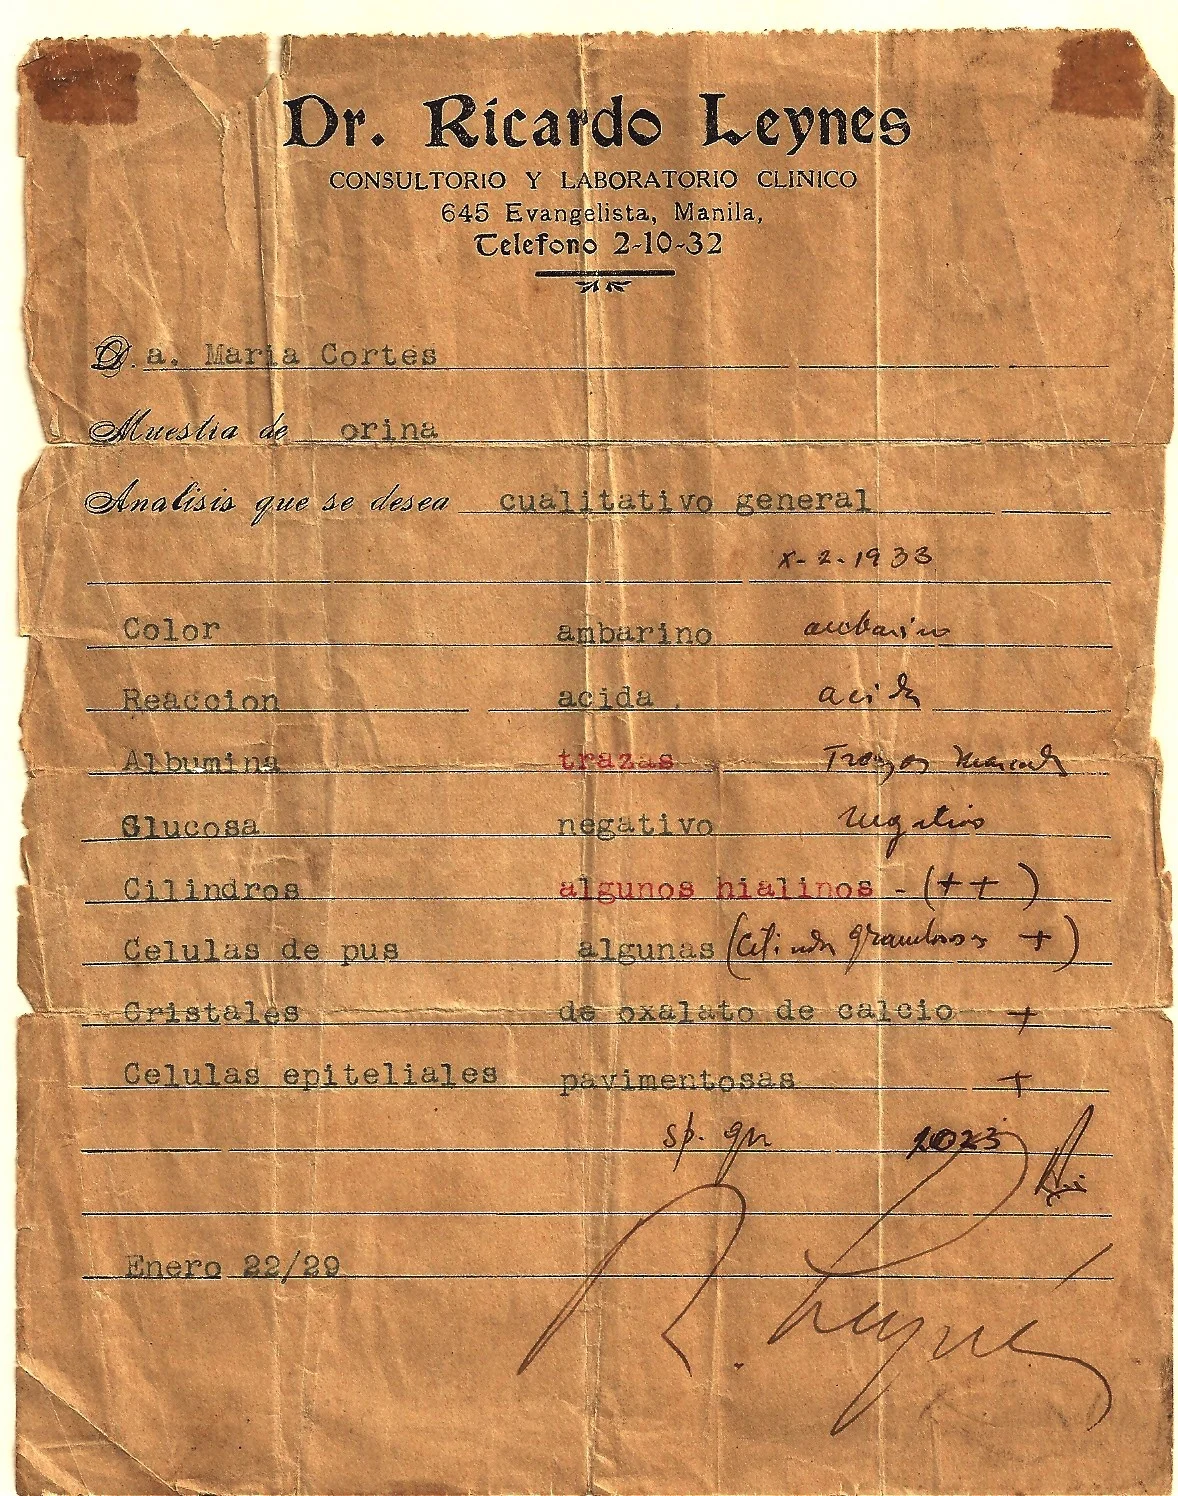 Dr. Ricardo Leynes
CONSULTORIO Y LABORATORIO CLINICO
645 Evangelista, Manila,
Telefono 2-10-32
D.a. Maria Cortes
Muestra de orina
Analisis que se desea cualitativo general
X-2-1933
Color ambarino ambarino
Reaccion acida acida
Albumina trazas Trazas marcada
Glucosa negativo negativo
Cilindros algunos hialinos - (++)
Celulas de pus algunas (Cilindr granulosos +)
Cristales de oxalato de calcio +
Celulas epiteliales pavimentosas +
sp. gr 1023
Enero 22/29
R. Leynes